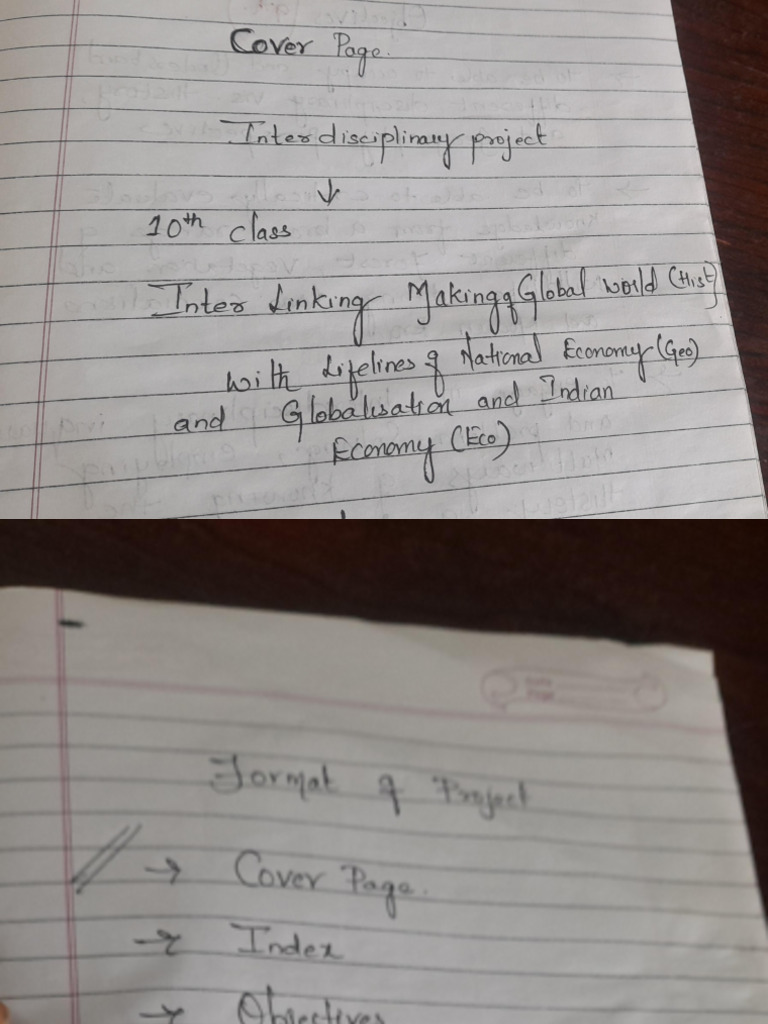 Cover Page.
Interdisciplinary project
↓
10th class
Inter Linking Making of Global world (Hist)
with Lifelines of National Economy (Geo)
and Globalisation and Indian
Economy (Eco)
Format of Project
→ Cover Page.
→ Index
→ Objectives